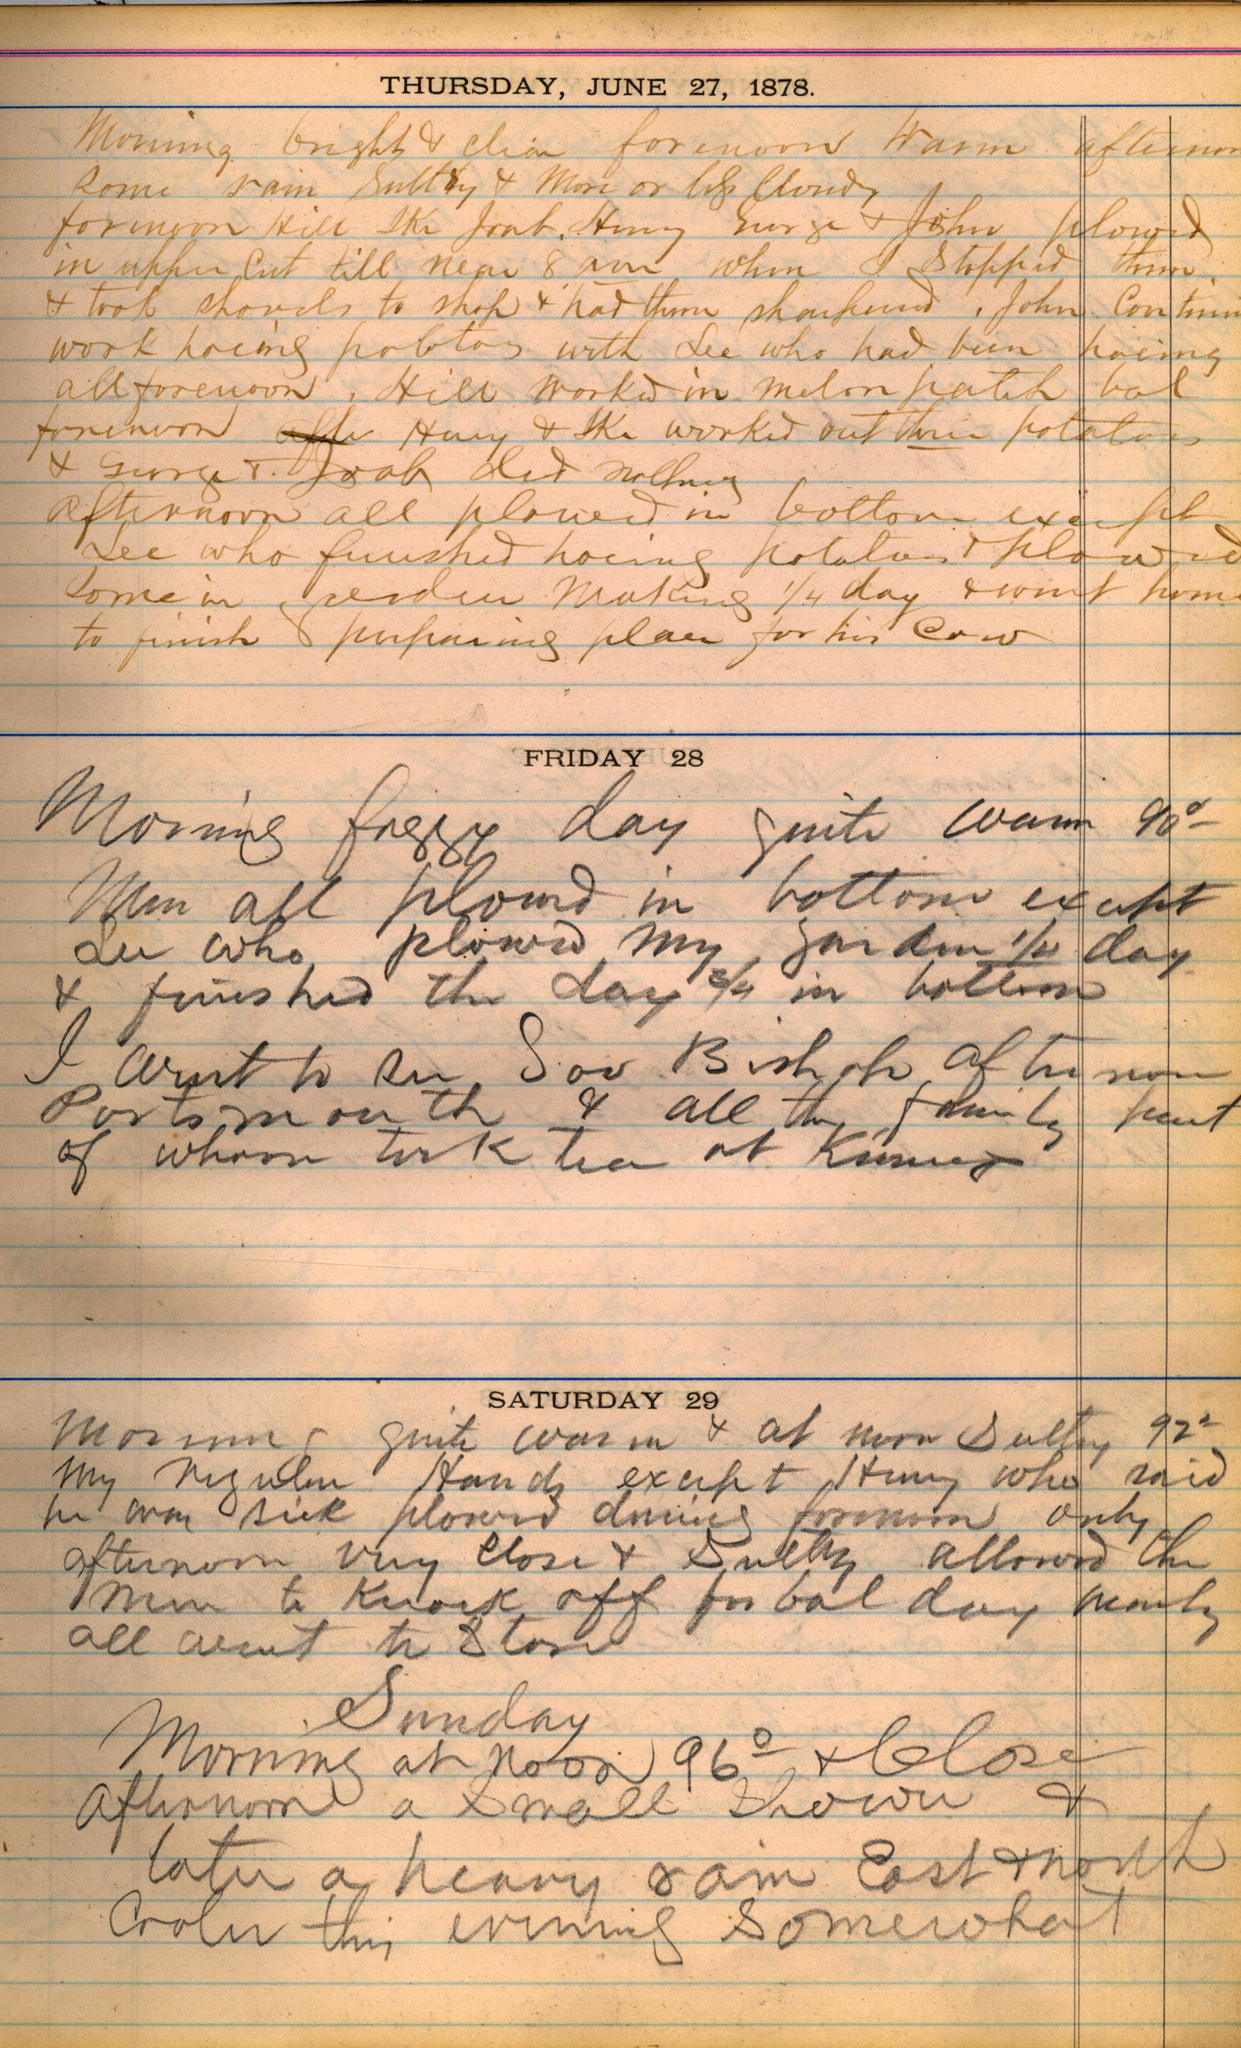 THURSDAY, JUNE 27, 1878.
Morning bright & clear forenoon warm afternoon
some rain Sultry & More or less Cloudy
forenoon Hill Ike Joab, Henry George & John plowed
in upper Cut till near 8 am when I Stopped them
& took shovels to shop & had them sharpened, John Continu
work hoeing potatoes with Lee who had been hoeing
all forenoon, Hill worked in melon patch bal
forenoon Henry & Ike worked out potatoes
& George T. Joab did nothing
Afternoon all plowed in bottom except
Lee who finished hoeing potatoes & plowed
some in garden Making 1/4 day & went home
to finish preparing place for his Cow
FRIDAY 28
Morning foggy day quite warm 90°
Men all plowed in bottom except
Lee who plowed my garden 1/4 day
& finished the day 3/4 in bottom
I went to see Gov Bishop afternoon
Portsmouth & all the family part
of whom took tea at Kinneys
SATURDAY 29
Morning quite warm & at noon Sultry 92°
My regular Hands except Henry who said
he was sick plowed during forenoon only
afternoon very Close & Sultry allowed the
Men to Knock off for bal day nearly
all went to Store
Sunday
Morning at noon 96° & Close
Afternoon a Small Shower &
later a heavy rain East & north
Cooler this evening Somewhat